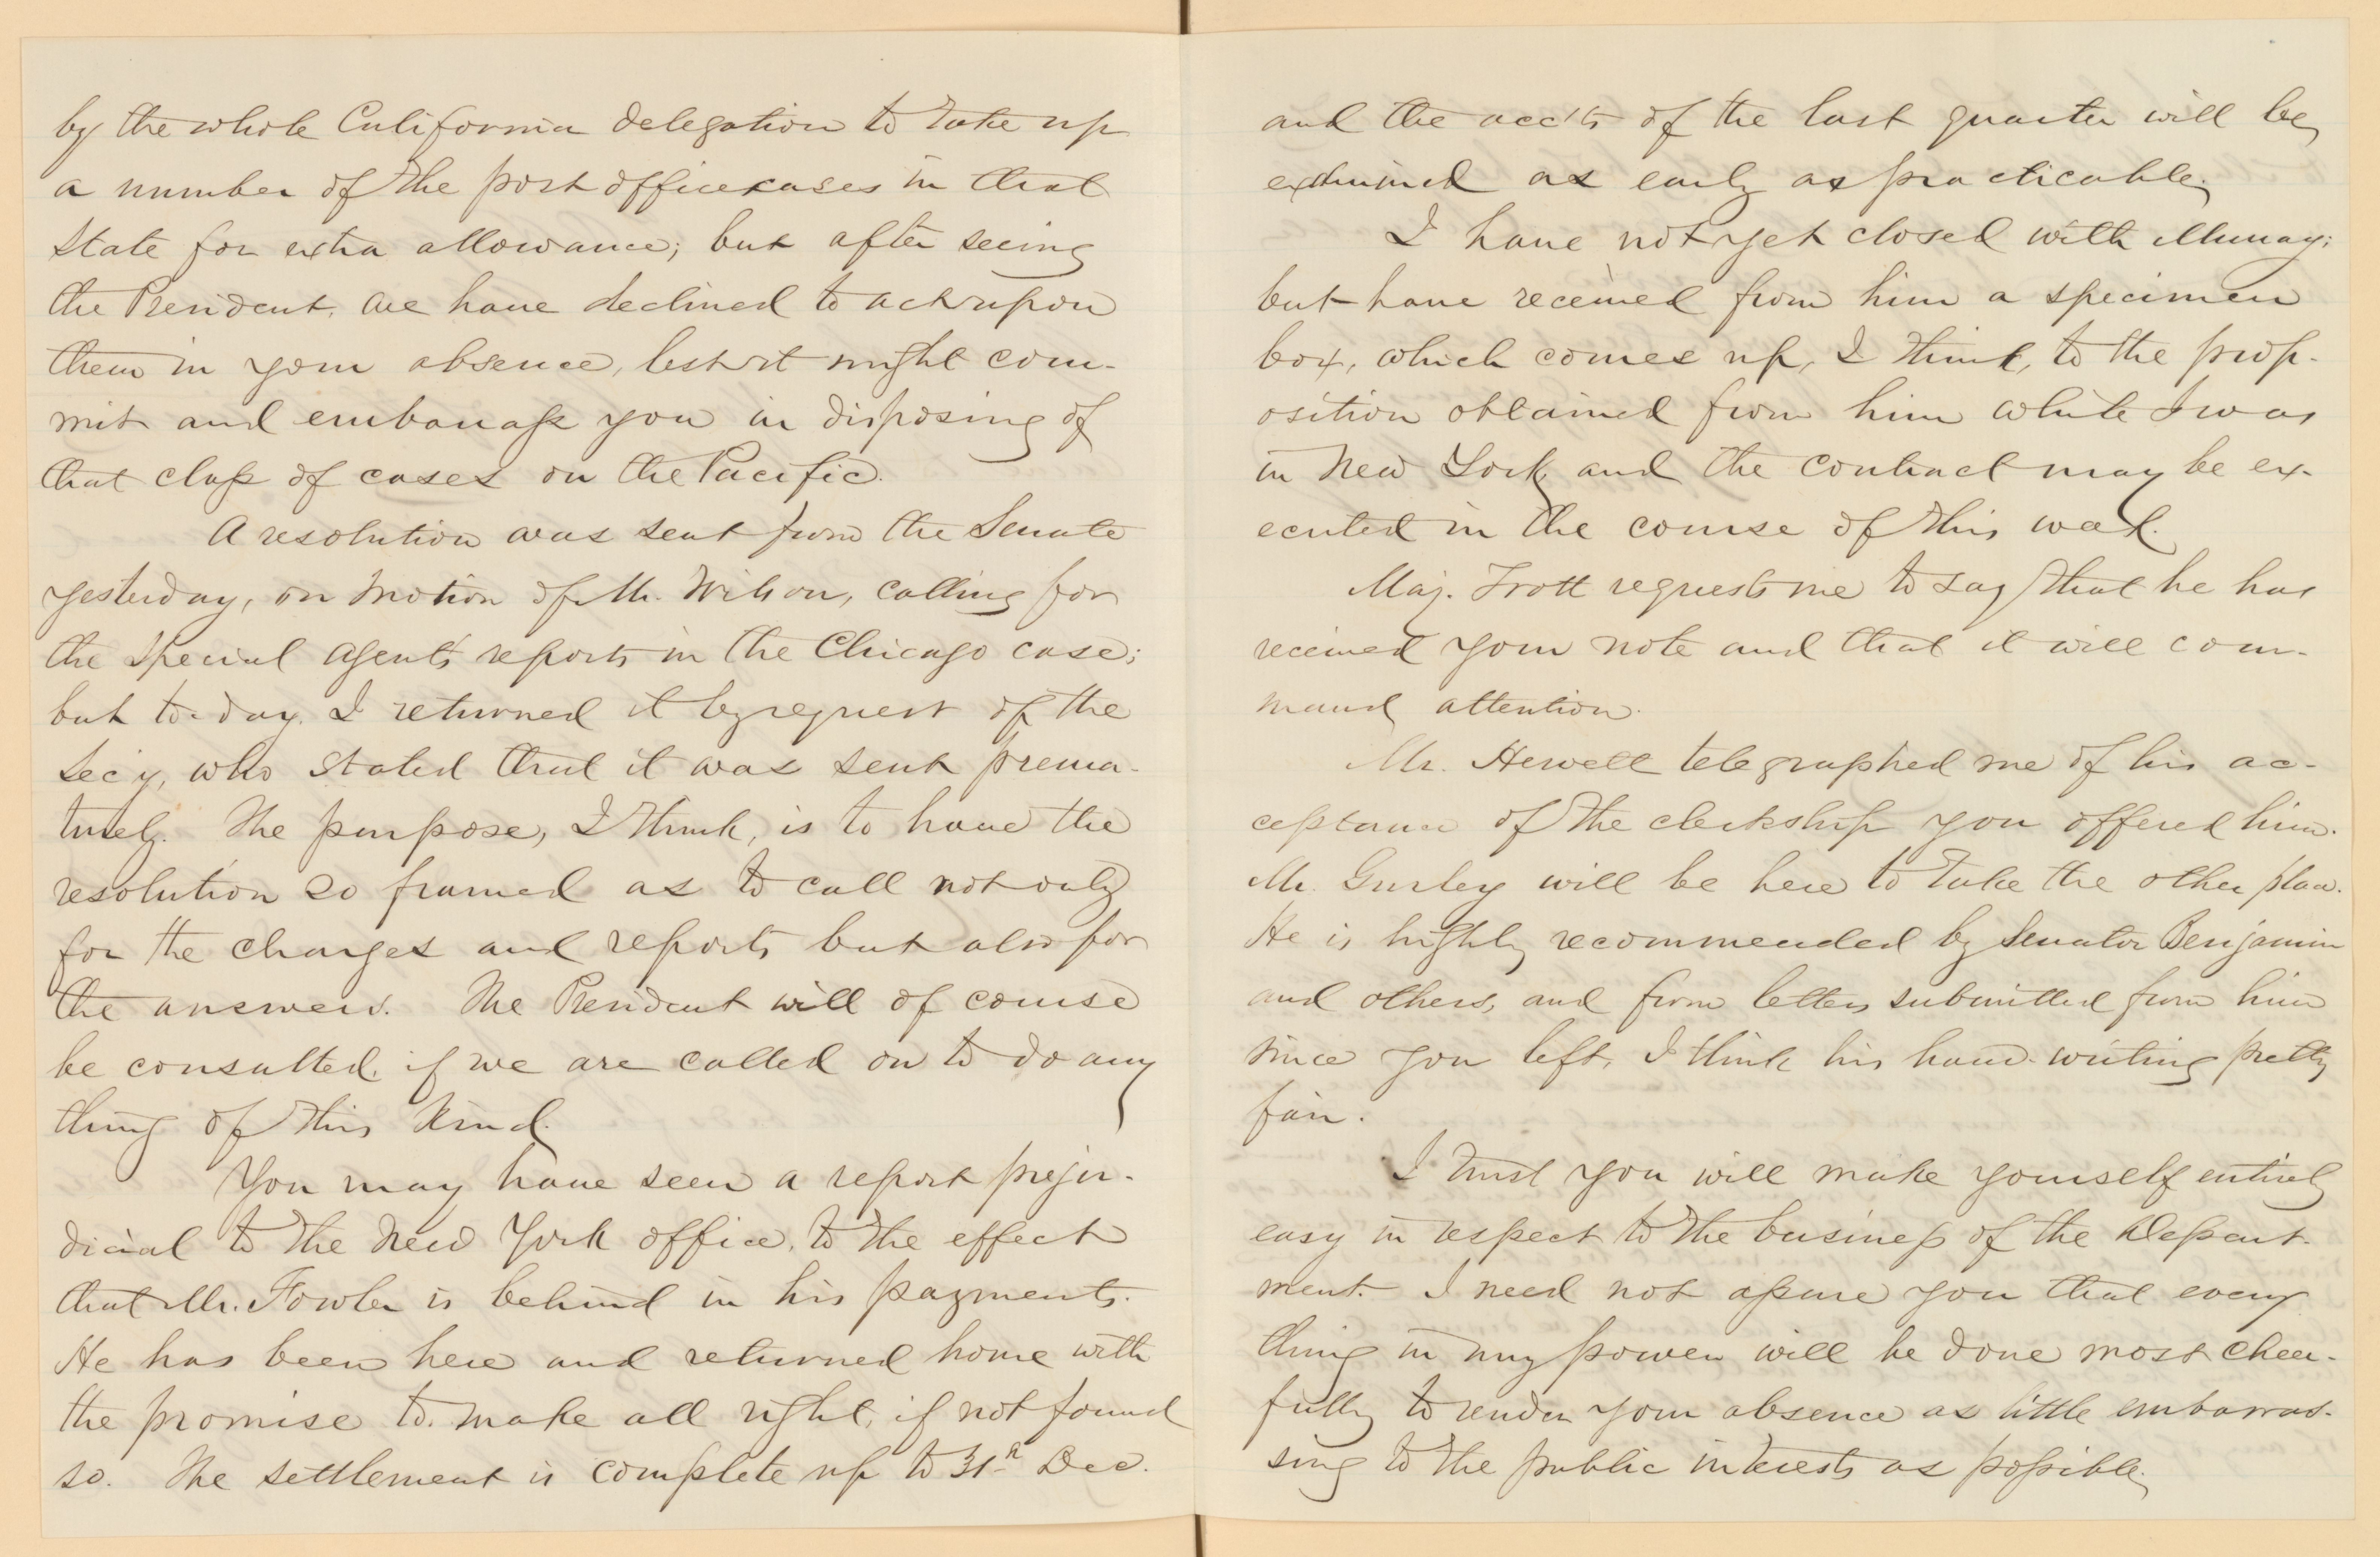 by the whole California delegation to take up
a number of the post office cases in that
State for extra allowance; but after seeing
the President, we have declined to act upon
them in your absence, lest it might com-
mit and embarrass you in disposing of
that class of cases on the Pacific.
A resolution was sent from the Senate
yesterday, on motion of Mr. Wilson, calling for
the special agent's reports in the Chicago case;
but to-day I returned it by request of the
Sec'y, who stated that it was sent prema-
turely. The purpose, I think, is to have the
resolution so framed as to call not only
for the charges and reports but also for
the answers. The President will of course
be consulted if we are called on to do any
thing of this kind.
You may have seen a report preju-
dicial to the New York office, to the effect
that Mr. Fowler is behind in his payments.
He has been here and returned home with
the promise to make all right, if not found
so. The settlement is complete up to 31st Dec.
and the acc'ts of the last quarter will be
examined as early as practicable.
I have not yet closed with Murray;
but have received from him a specimen
box, which comes up, I think, to the prop-
osition obtained from him while I was
in New York, and the contract may be ex-
ecuted in the course of this week.
Maj. Trott requests me to say that he has
received your note and that it will com-
mand attention.
Mr. Hewell telegraphed me of his ac-
ceptance of the clerkship you offered him.
Mr. Gurley will be here to take the other place.
He is highly recommended by Senator Benjamin
and others, and from letters submitted from him
since you left, I think his hand-writing pretty
fair.
I trust you will make yourself entirely
easy in respect to the business of the Depart-
ment. I need not assure you that every
thing in my power will be done most cheer-
fully to render your absence as little embarras-
sing to the public interests as possible.